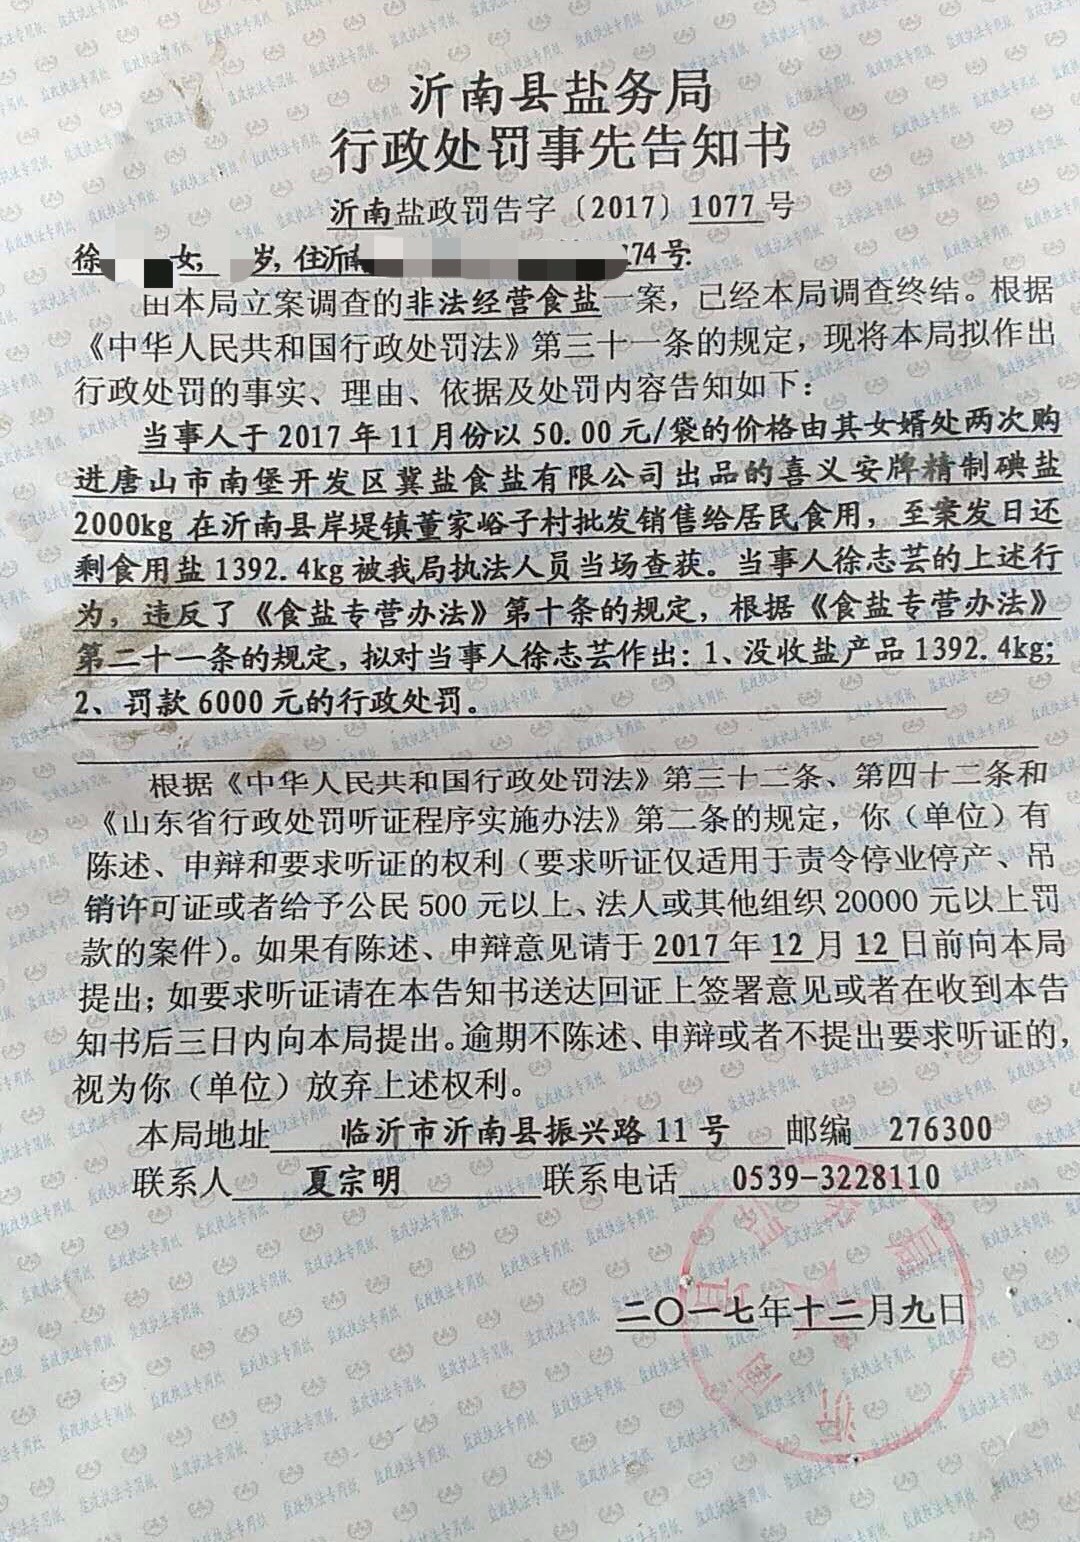 沂南县盐务局
行政处罚事先告知书
沂南盐政罚告字〔2017〕1077号
徐 女, 岁,住沂南 174号:
由本局立案调查的非法经营食盐一案,已经本局调查终结。根据
《中华人民共和国行政处罚法》第三十一条的规定,现将本局拟作出
行政处罚的事实、理由、依据及处罚内容告知如下:
当事人于2017年11月份以50.00元/袋的价格由其女婿处两次购
进唐山市南堡开发区冀盐食盐有限公司出品的喜义安牌精制碘盐
2000kg在沂南县岸堤镇董家峪子村批发销售给居民食用,至案发日还
剩食用盐1392.4kg被我局执法人员当场查获。当事人徐志芸的上述行
为,违反了《食盐专营办法》第十条的规定,根据《食盐专营办法》
第二十一条的规定,拟对当事人徐志芸作出:1、没收盐产品1392.4kg;
2、罚款6000元的行政处罚。
根据《中华人民共和国行政处罚法》第三十二条、第四十二条和
《山东省行政处罚听证程序实施办法》第二条的规定,你(单位)有
陈述、申辩和要求听证的权利(要求听证仅适用于责令停业停产、吊
销许可证或者给予公民500元以上、法人或其他组织20000元以上罚
款的案件)。如果有陈述、申辩意见请于2017年12月12日前向本局
提出;如要求听证请在本告知书送达回证上签署意见或者在收到本告
知书后三日内向本局提出。逾期不陈述、申辩或者不提出要求听证的,
视为你(单位)放弃上述权利。
本局地址 临沂市沂南县振兴路11号 邮编 276300
联系人 夏宗明 联系电话 0539-3228110
二〇一七年十二月九日